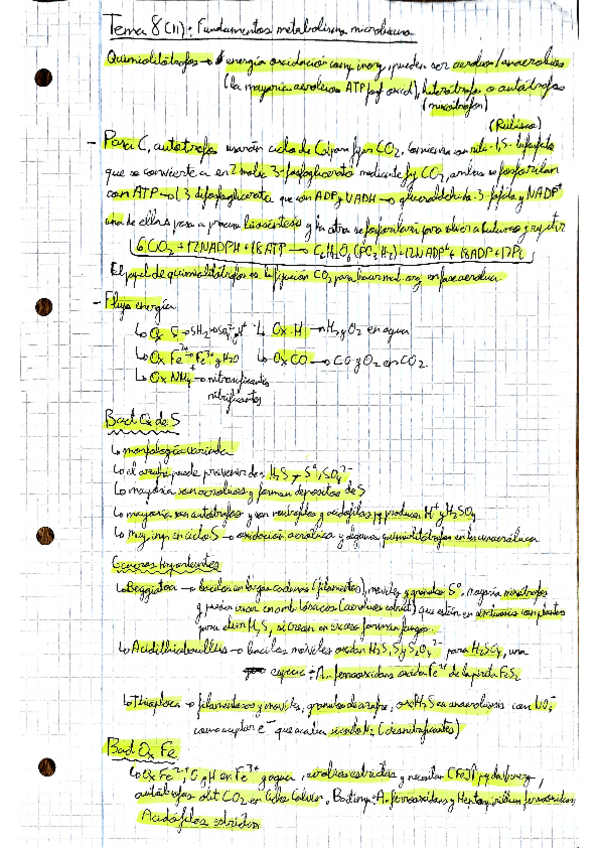 Tema 8 (II): Fundamentos metabolismo microbiano
Quimiolitótrofos → energía oxidación comp inorg, pueden ser aerobios/anaerobios
(la mayoría aerobios ATP fosf oxid), heterótrofos o autótrofos
(mixótrofos)
(Rubisco)
- Para C, autótrofos usarán ciclo de Calvin para fijar CO2, comienza con 1,5-bifosfato
que se convierte a en 2 mols 3-fosfoglicerato mediante fij CO2, ambas se fosforilan
con ATP → 1,3 difosfoglicerato que con ADP y NADH → gliceraldehído-3-fosfato y NADP+
una de ellas pasa a procesos biosíntesis y la otra se fosforilará para volver a
6CO2 + 12NADPH + 18ATP → C6H12O6(PO3H2) + 12NADP+ + 18ADP + 17Pi
El papel de quimiolitótrofos es la fijación CO2 para hacer mat. org. en fase aerobia.
- Flujo energía
↳ Ox S → SH2 → SO4 2- y H+ ↳ Ox H → H2 y O2 en agua
↳ Ox Fe2+ → Fe3+ y H2O ↳ Ox CO → CO y O2 en CO2
↳ Ox NH4+ → nitrosificantes
nitrificantes
Bact Ox de S
↳ morfología variada
↳ el azufre puede provenir de: H2S, S°, SO4 2-
↳ mayoría son aerobios y forman depósitos de S
↳ mayoría son autótrofos y son neutrófilos y acidófilos pq producen H+ y H2SO4
↳ muy imp en ciclo S → oxidación aerobica y algunos quimiolitótrofos en la anaerobica
Géneros Importantes
↳ Beggiatoa → bacilos en largas cadenas (filamentos), móviles y gránulos S°, mayoría mixótrofos
y pueden crecer en amb tóxicos que están en simbiosis con plantas
para elim H2S, si crecen en exceso forman fangos.
↳ Acidithiobacillus → bacilos móviles oxidan H2S, S y S2O3 2- para H2SO4, una
especie A. ferrooxidans oxida Fe2+ de la pirita FeS2
↳ Thioploca → filamentosos y móviles, gránulos de azufre, ox H2S en anaerobiosis con NO3-
como aceptor e- que acaba siendo N2 (desnitrificantes)
Bact Ox Fe
↳ Ox Fe2+, O y H en Fe3+ y agua, aerobias estrictas y necesitan [Fe]↑ pq dan energ,
autótrofos obt CO2 en Ciclo Calvin. A. ferrooxidans y ferrooxidans
Acidófilos estrictos